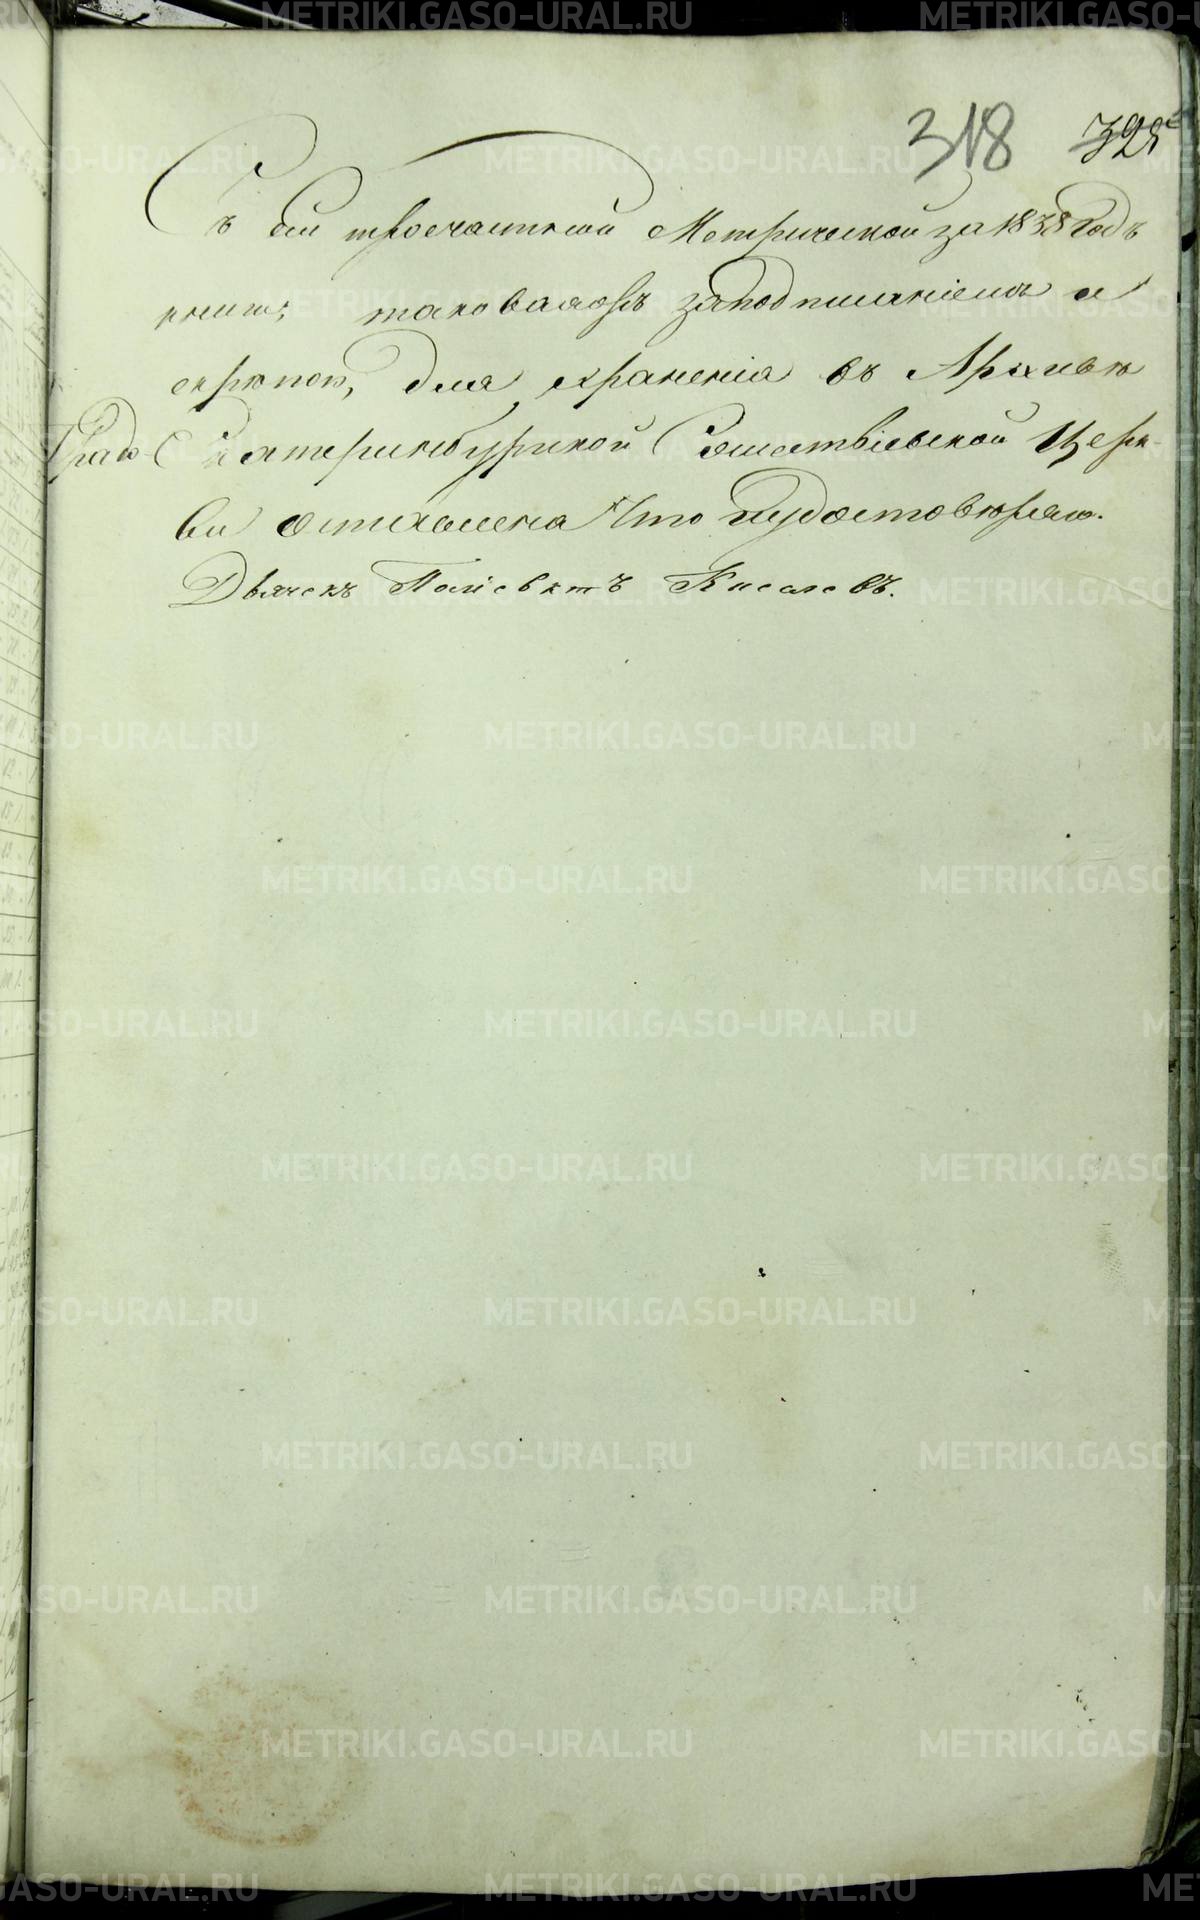 318 325
Съ сей троечастной Метрической за 1838 годъ
книги; таковаяжъ заподписаніемъ и
скрѣпою, для храненія въ Архивѣ
Градо-Екатеринбургской Сошествіевской Церк-
ви оставлена Что и удостовѣряю.
Дьячекъ Полієвктъ Киселевъ.